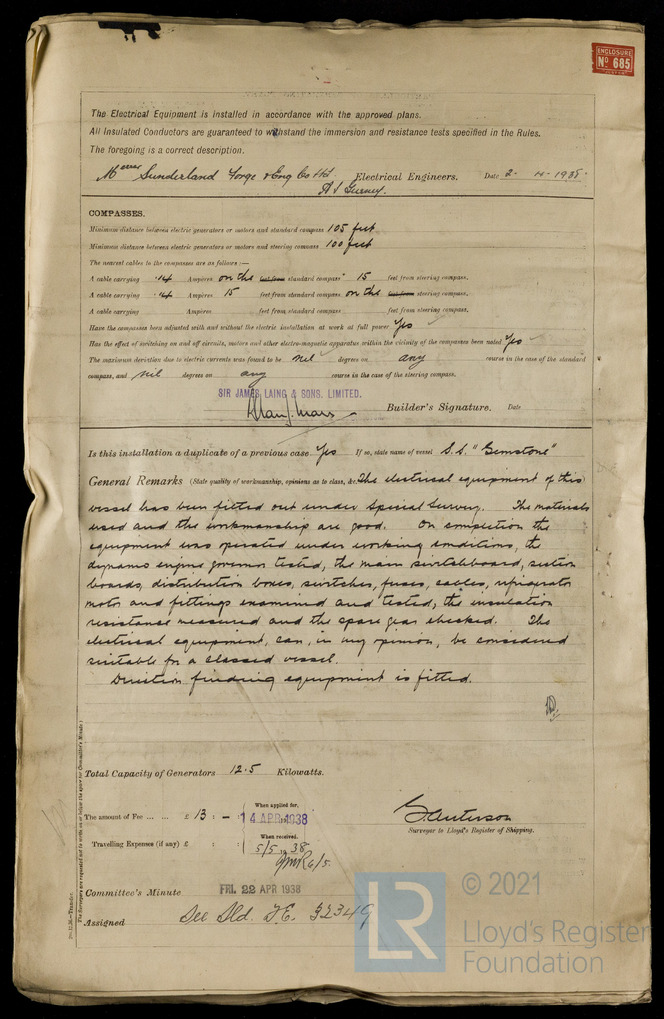 ENCLOSURE
No 685
The Electrical Equipment is installed in accordance with the approved plans.
All Insulated Conductors are guaranteed to withstand the immersion and resistance tests specified in the Rules.
The foregoing is a correct description.
Messrs Sunderland Forge & Eng Co Ltd. Electrical Engineers. Date 2- 1938.
COMPASSES.
Minimum distance between electric generators or motors and standard compass 105 feet
Minimum distance between electric generators or motors and steering compass 100 feet
The nearest cables to the compasses are as follows:—
A cable carrying .14 Ampères on the feet from standard compass 15 feet from steering compass.
A cable carrying .14 Ampères 15 feet from standard compass on the feet from steering compass.
A cable carrying Ampères feet from standard compass feet from steering compass.
Have the compasses been adjusted with and without the electric installation at work at full power Yes
Has the effect of switching on and off circuits, motors and other electro-magnetic apparatus within the vicinity of the compasses been noted Yes
The maximum deviation due to electric currents was found to be nil degrees on any course in the case of the standard
compass, and nil degrees on any course in the case of the steering compass.
SIR JAMES LAING & SONS. LIMITED.
Builder's Signature. Date
Is this installation a duplicate of a previous case Yes If so, state name of vessel S.S. "Gemstone"
General Remarks (State quality of workmanship, opinions as to class, &c. The electrical equipment of this
vessel has been fitted out under Special Survey. The materials
used and the workmanship are good. On completion the
equipment was operated under working conditions, the
dynamo engine governor tested, the main switchboard, section
boards, distribution boxes, switches, fuses, cables, refrigerator
motor and fittings examined and tested, the insulation
resistance measured and the spare gear checked. The
electrical equipment, can, in my opinion, be considered
suitable for a classed vessel.
Direction finding equipment is fitted.
Total Capacity of Generators 12.5 Kilowatts.
The amount of Fee ... ... £ 13 : - :
When applied for,
14 APR 1938
Surveyor to Lloyd's Register of Shipping.
Travelling Expenses (if any) £ : :
When received,
5/5 38
6/5.
Committee's Minute FRI. 22 APR 1938
Assigned See Sld. F.E. 32349
The Surveyors are requested not to write on or below the space for Committee's Minute.
LR
© 2021
Lloyd's Register
Foundation